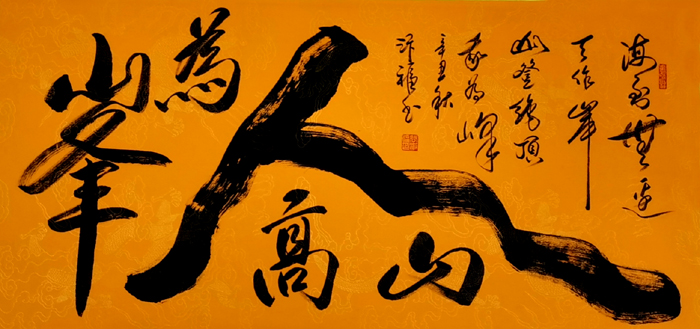 山高人為峯
海到無邊
天作岸
山登絶頂
我為峰
辛丑秋
书